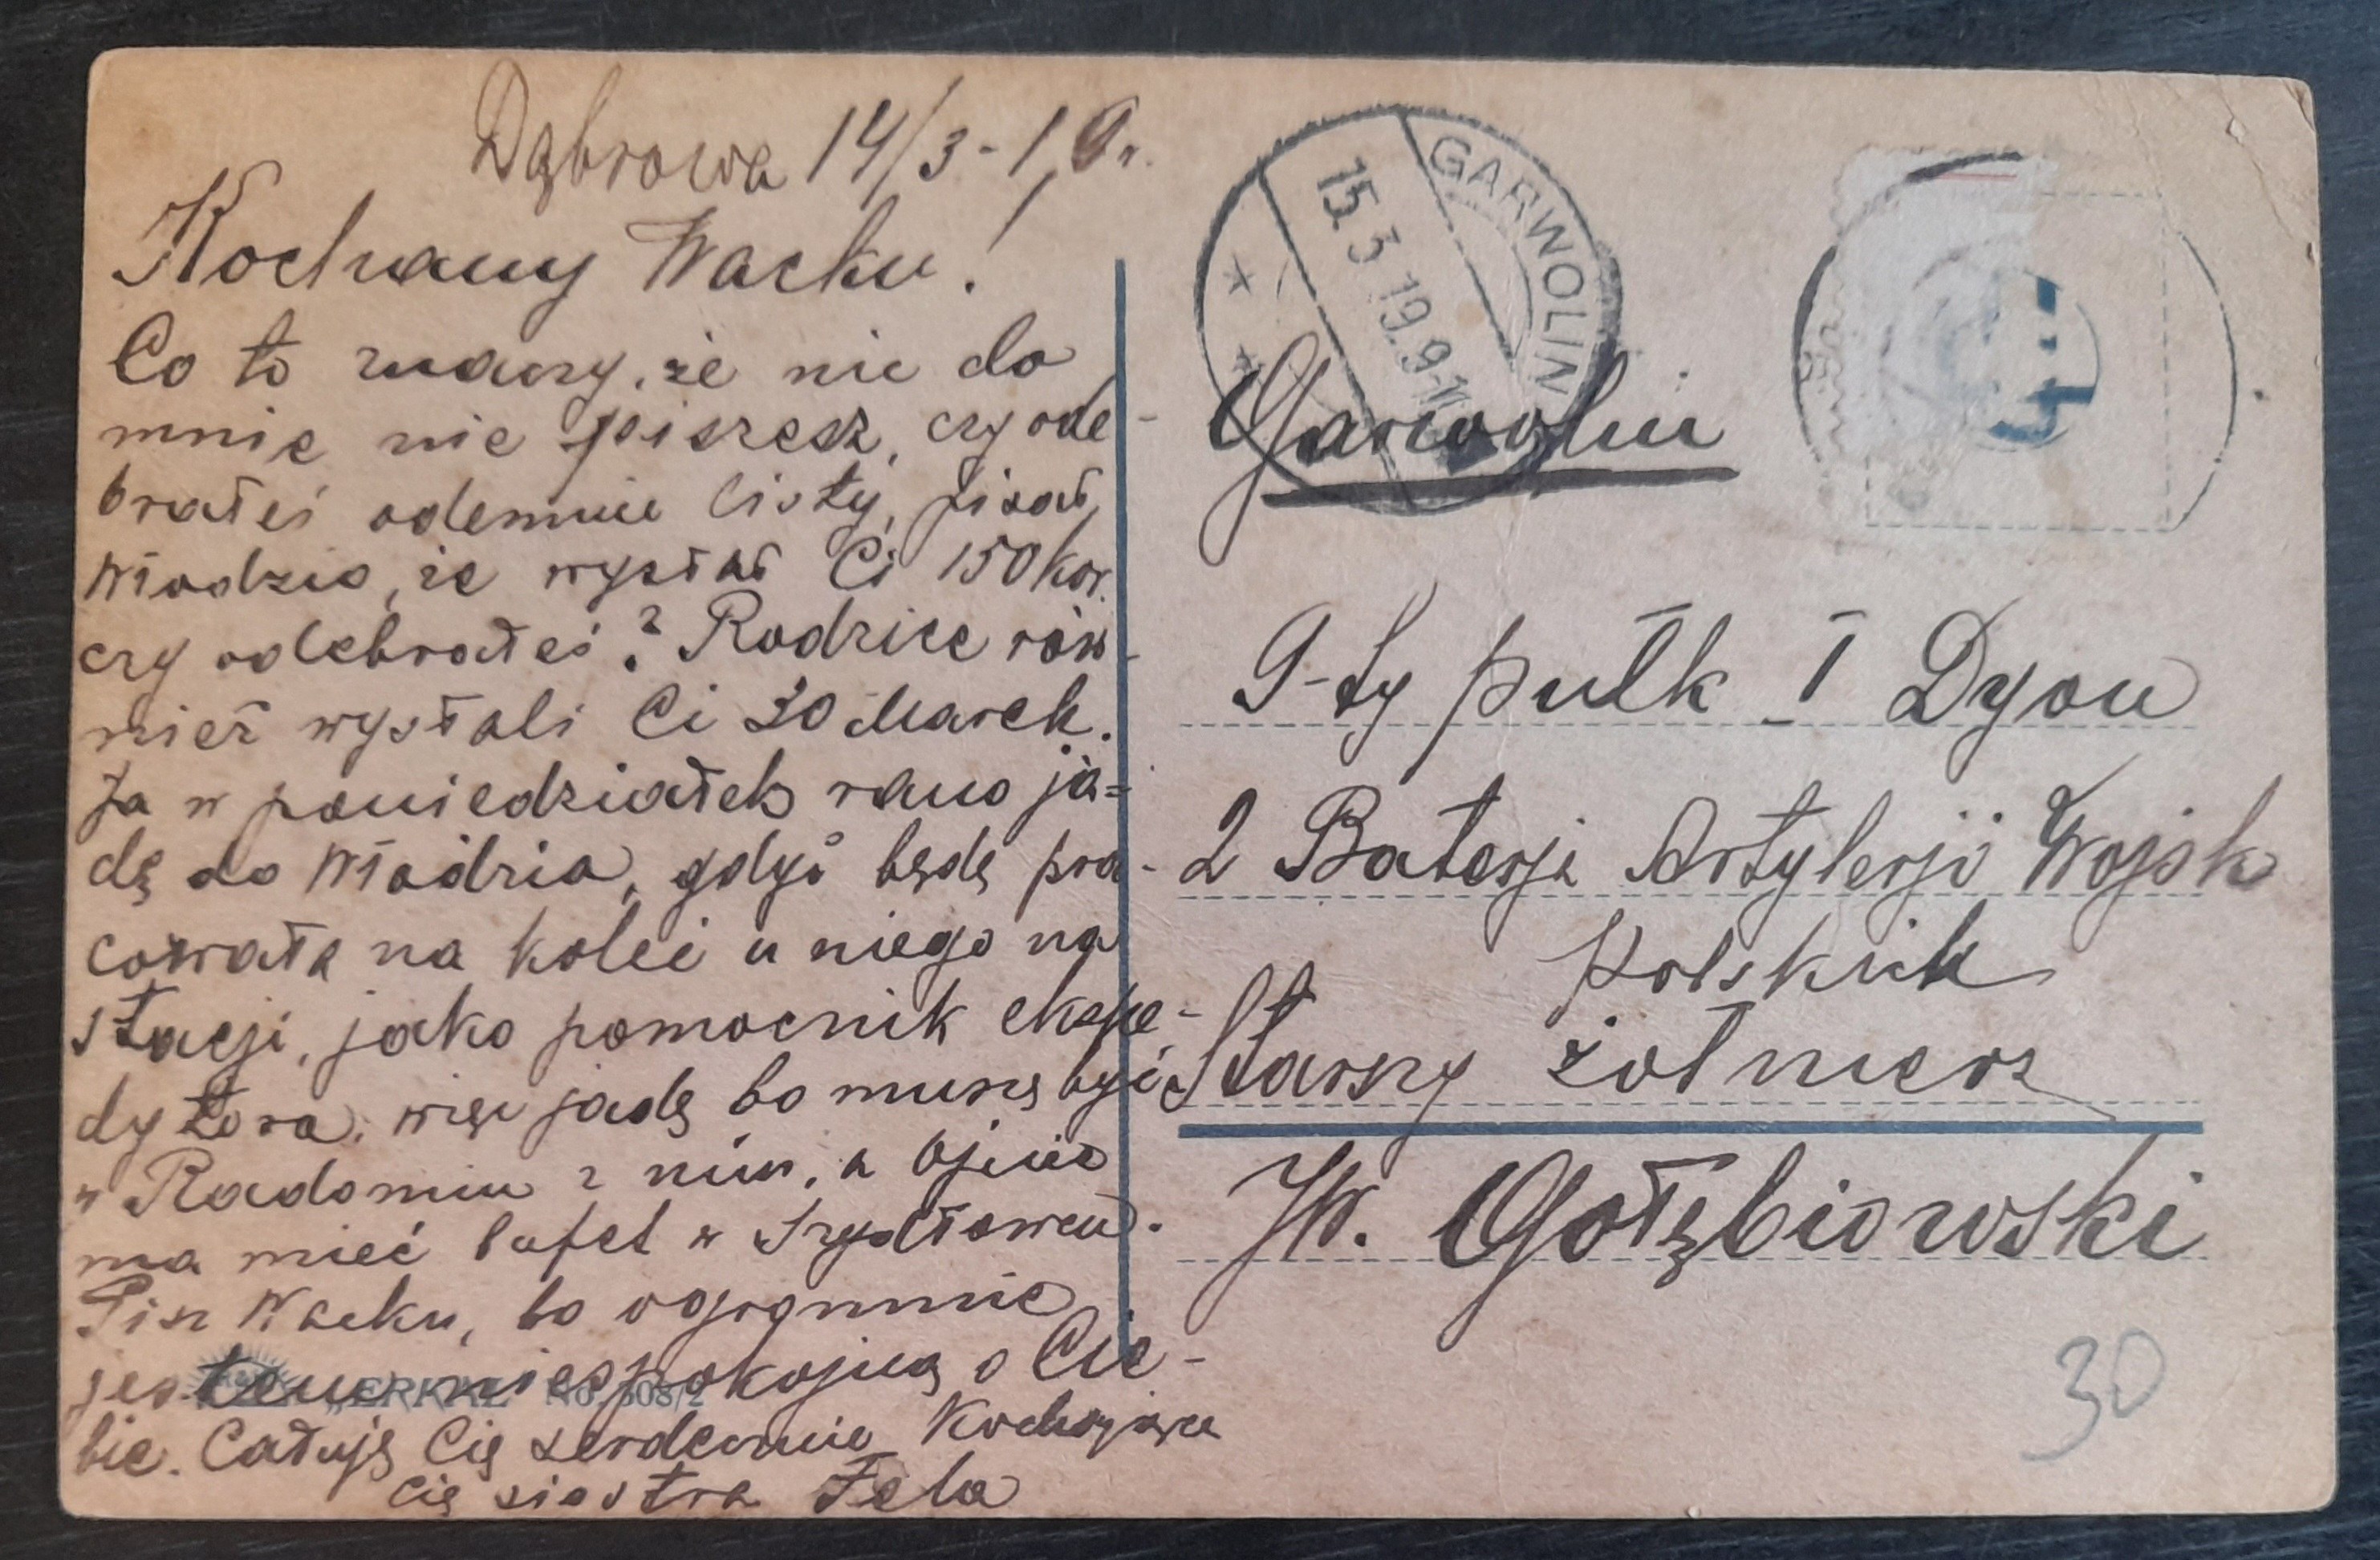 Dąbrowa 14/3-19r.
Kochany Wacku!
Co to znaczy, że nic do
mnie nie piszesz, czy ode-
brałeś odemnie listy, pisał
Włodzio, że wysłał Ci 150 kor.
czy odebrałeś? Rodzice rów-
nież wysłali Ci 30 Marek.
Ja w poniedziałek rano ja=
dę do Włodzia, gdyż będę pra-
cowała na kolei u niego na
stacji, jako pomocnik ekspe-
dytora, więc jadę bo muszę być
w Radomiu z nim, a Ojciec
ma mieć bufet w Szydłowcu.
Pisz Wacku, bo ogromnie
jestem niespokojną o Cie-
bie. Całuję Cię serdecznie Kochająca
Cię siostra Fela
„ERKAL" No. 308/2
GARWOLIN
15.3 19.9-
Garwolin
9-ty pułk I Dyon
2 Baterji Artylerji Wojsk
Polskich
Starszy żołnierz
W. Gołębiowski
30